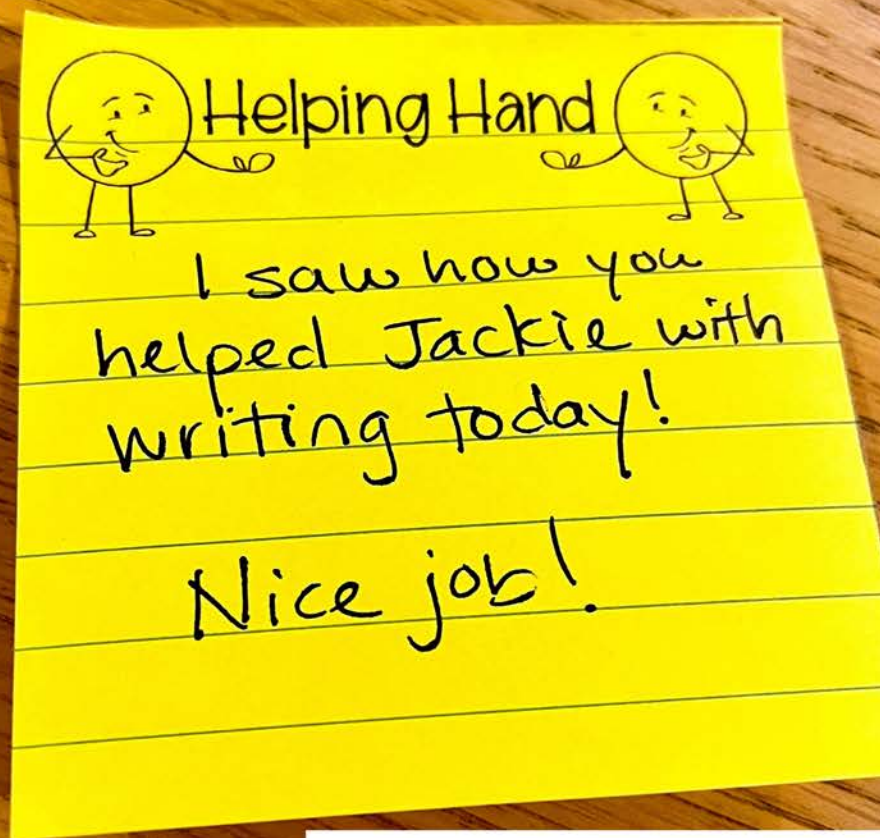 Helping Hand
I saw how you
helped Jackie with
writing today!
Nice job!